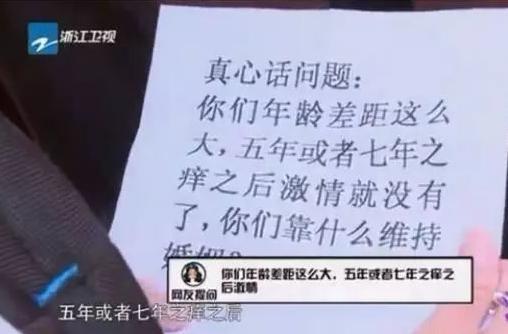 浙江卫视
真心话问题:
你们年龄差距这么
大，五年或者七年之
痒之后激情就没有
了，你们靠什么维持
婚姻?
网友提问
你们年龄差距这么大，五年或者七年之痒之
后激情
五年或者七年之痒之后